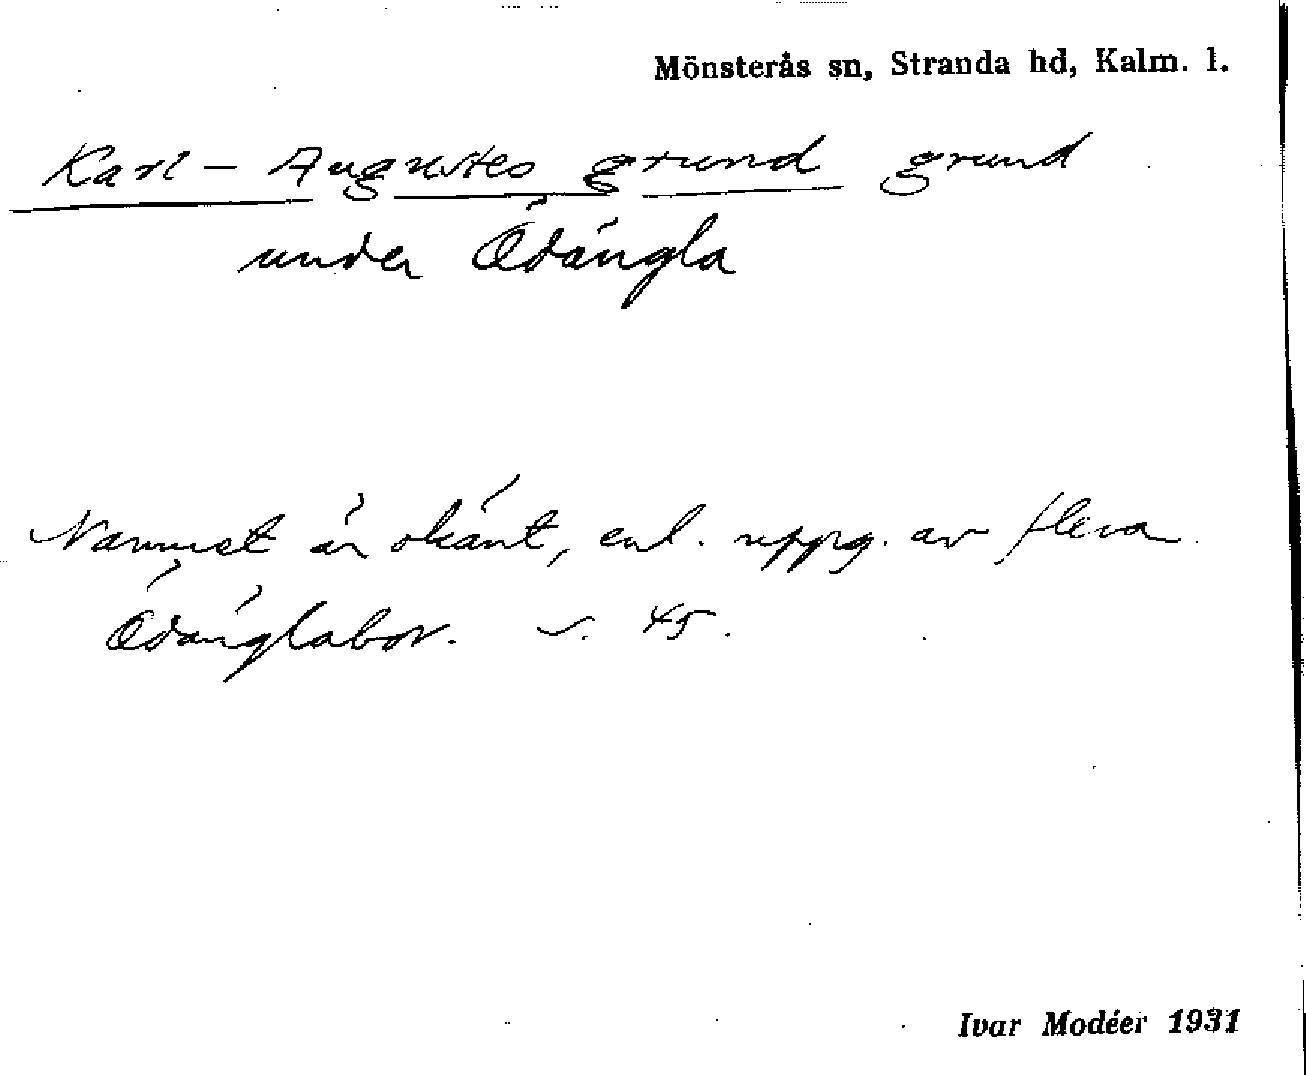 Mönsterås sn, Stranda hd, Kalm. l.
Karl-Augustes grund grund
under Ödängla
Namnet är okänt, enl. uppg. av flera
Ödänglabor. s. 45.
Ivar Modéer 1931